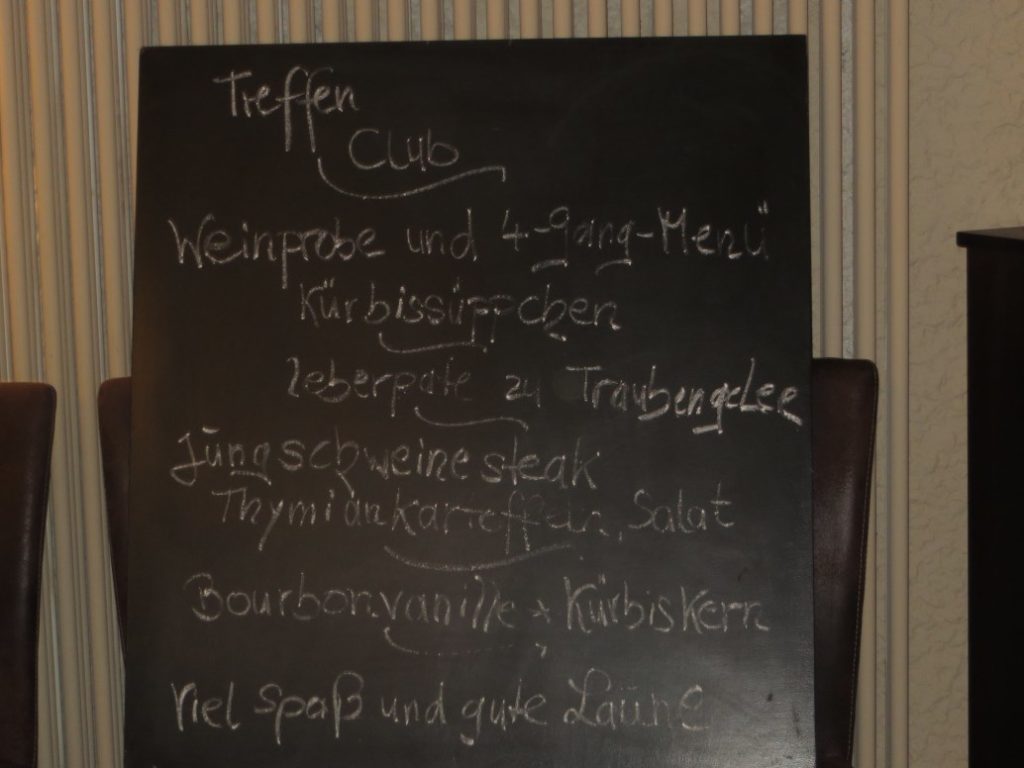 Treffen
Club
Weinprobe und 4-gang-Menü
Kürbissüppchen
Leberpate zu Traubengelee
Jungschweinesteak
Thymiankartoffeln, Salat
Bourbonvanille * Kürbiskern
Viel Spaß und gute Laune